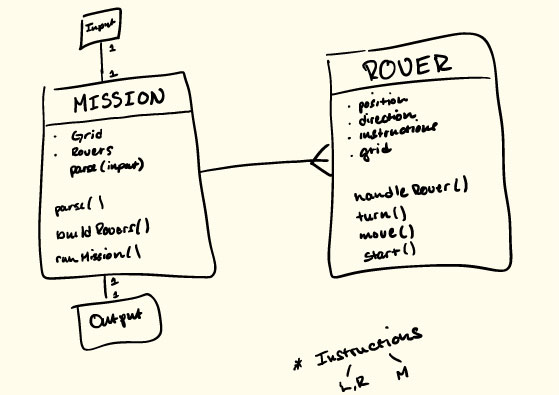 Input
1
1
MISSION
· Grid
· Rovers
parse(input)
parse()
buildRovers()
runMission()
1
1
Output
ROVER
· position
· direction
· instructions
· grid
handleRover()
turn()
move()
start()
* Instructions
L,R M